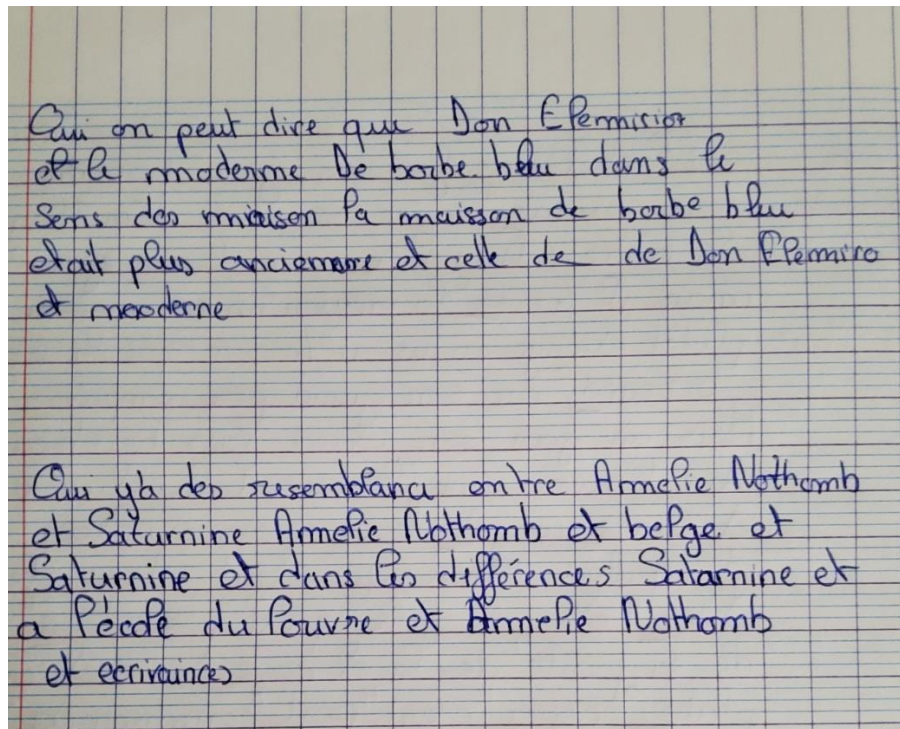 Oui on peut dire que Don Elermirior
et le moderme De barbe bleu dans le
sens des maison la maisson de barbe bleu
etait plus anciemnne et celle de de Don Elemiro
et mooderne
Oui y'a des resemblanca entre Amnelie Nothomb
et Saturnine Amnelie Nothomb et belge et
Saturnine et dans les différences Satarnine et
a l'école du louvre et Amnelie Nothomb
et ecrivaince